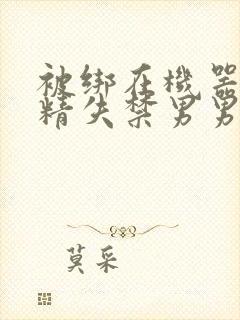 被绑在機器
精失禁男男
莫采